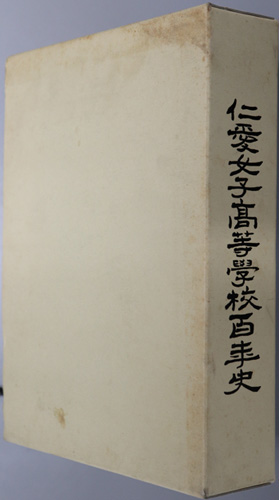 仁愛女子髙等學校百年史